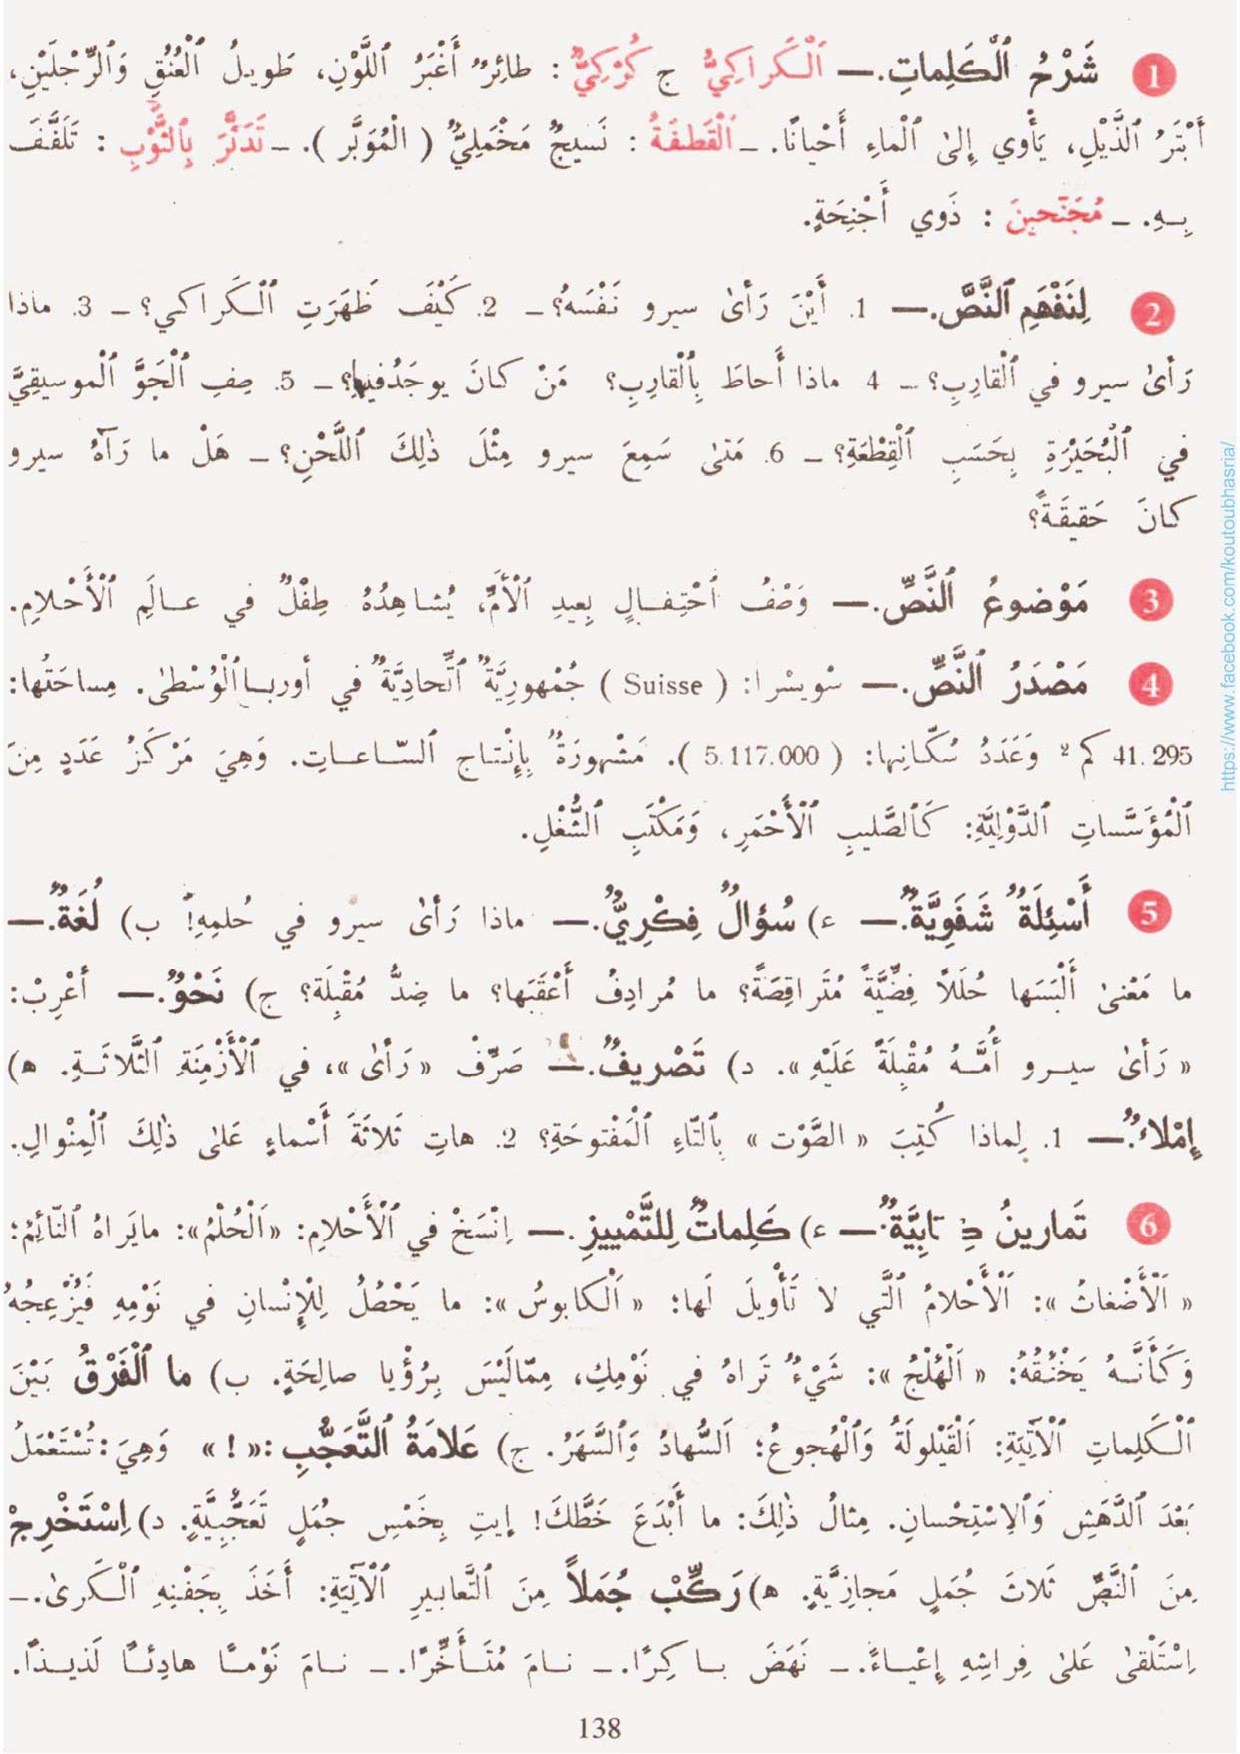 1 شَرْحُ ٱلْكَلِماتِ.— اَلْكَراكِيُّ ج كُرْكِيٌّ : طائِرٌ أَغْبَرُ ٱللَّوْنِ، طَويلُ ٱلْعُنُقِ وَٱلرِّجْلَيْنِ،
أَبْتَرُ ٱلذَّيْلِ، يَأْوي إِلىٰ ٱلْماءِ أَحْيانًا. – اَلْقَطفَةُ : نَسيجٌ مَخْمَلِيٌّ ( الْمُوَبَّر ). – تَدَثَّرَ بِالثَّوْبِ : تَلَفَّفَ
بِهِ. – مُجَنَّحينَ : ذَوي أَجْنِحَةٍ.
2 لِنَفْهَمِ ٱلنَّصَّ.— 1. أَيْنَ رَأىٰ سيرو نَفْسَهُ؟ – 2. كَيْفَ ظَهَرَتِ ٱلْكَراكي؟ – 3. ماذا
رَأىٰ سيرو في ٱلْقارِبِ؟ – 4 ماذا أَحاطَ بِٱلْقارِبِ؟ مَنْ كانَ يوجَدُفيها؟ – 5. صِفِ ٱلْجَوَّ ٱلْموسيقِيَّ
في ٱلْبُحَيْرَةِ بِحَسَبِ ٱلْقِطْعَةِ؟ – 6. مَتىٰ سَمِعَ سيرو مِثْلَ ذٰلِكَ ٱللَّحْنِ؟ – هَلْ ما رَآهُ سيرو
كانَ حَقيقَةً؟
3 مَوْضوعُ ٱلنَّصِّ.— وَصْفُ ٱحْتِفالٍ بِعيدِ ٱلْأُمِّ، يُشاهِدُهُ طِفْلٌ في عالَمِ ٱلْأَحْلامِ.
4 مَصْدَرُ ٱلنَّصِّ.— سْويسْرا: ( Suisse ) جُمْهورِيَّةٌ ٱتِّحادِيَّةٌ في أوربا ٱلْوُسْطىٰ. مِساحَتُها:
41.295 كم² وَعَدَدُ سُكّانِها: ( 5.117.000 ). مَشْهورَةٌ بِإِنْتاجِ ٱلسّاعاتِ. وَهِيَ مَرْكَزُ عَدَدٍ مِنَ
ٱلْمُؤَسَّساتِ ٱلدَّوْلِيَّةِ: كَٱلصَّليبِ ٱلْأَحْمَرِ، وَمَكْتَبِ ٱلشُّغْلِ.
5 أَسْئِلَةٌ شَفَوِيَّةٌ.— ء) سُؤالٌ فِكْرِيٌّ.— ماذا رَأىٰ سيرو في حُلمِهِ! ب) لُغَةٌ.—
ما مَعْنىٰ أَلْبَسَها حُلَلاً فِضِّيَّةً مُتَراقِصَةً؟ ما مُرادِفُ أَعْقَبَها؟ ما ضِدُّ مُقْبِلَة؟ ج) نَحْوٌ.— أَعْرِبْ:
« رَأىٰ سيرو أُمَّهُ مُقْبِلَةً عَلَيْهِ ». د) تَصْريفٌ.— صَرِّفْ « رَأىٰ »، في ٱلْأَزْمِنَةِ ٱلثَّلاثَةِ. ه)
إِمْلاءٌ.— 1. لِماذا كُتِبَ « الصَّوْت » بِٱلتّاءِ ٱلْمَفْتوحَةِ؟ 2. هاتِ ثَلاثَةَ أَسْماءٍ عَلىٰ ذٰلِكَ ٱلْمِنْوالِ.
6 تَمارينُ كِتابِيَّةٌ.— ء) كَلِماتٌ لِلتَّمْييزِ.— اِنْسَخْ في ٱلْأَحْلامِ: «اَلْحُلْمُ»: مايَراهُ ٱلنّائِمُ؛
« اَلْأَضْغاثُ »: اَلْأَحْلامُ ٱلَّتي لا تَأْويلَ لَها؛ « اَلْكابوسُ »: ما يَحْصُلُ لِلْإِنْسانِ في نَوْمِهِ فَيُزْعِجُهُ
وَكَأَنَّهُ يَخْنُقُهُ: « اَلْهُلْجُ »: شَيْءٌ تَراهُ في نَوْمِكِ، مِمّالَيْسَ بِرُؤْيا صالِحَةٍ. ب) ما ٱلْفَرْقُ بَيْنَ
ٱلْكَلِماتِ ٱلْآتِيَةِ: اَلْقَيْلولَةُ وَٱلْهُجوعُ؛ اَلسُّهادُ وَٱلسَّهَرُ. ج) عَلامَةُ ٱلتَّعَجُّبِ :« ! » وَهِيَ : تُسْتَعْمَلُ
بَعْدَ ٱلدَّهَشِ وَٱلِاسْتِحْسانِ. مِثالُ ذٰلِكَ: ما أَبْدَعَ خَطَّكَ! إيتِ بِخَمْسِ جُمَلٍ تَعَجُّبِيَّةٍ. د) اِسْتَخْرِجْ
مِنَ ٱلنَّصِّ ثَلاثَ جُمَلٍ مَجازِيَّةٍ. ه) رَكِّبْ جُمَلاً مِنَ ٱلتَّعابيرِ ٱلْآتِيَةِ: أَخَذَ بِجَفْنِهِ ٱلْكَرىٰ.–
اِسْتَلْقىٰ عَلىٰ فِراشِهِ إِعْياءً. – نَهَضَ باكِرًا. – نامَ مُتَأَخِّرًا. – نامَ نَوْمًا هادِئًا لَذيذًا.
138
https://www.facebook.com/koutoubhasria/